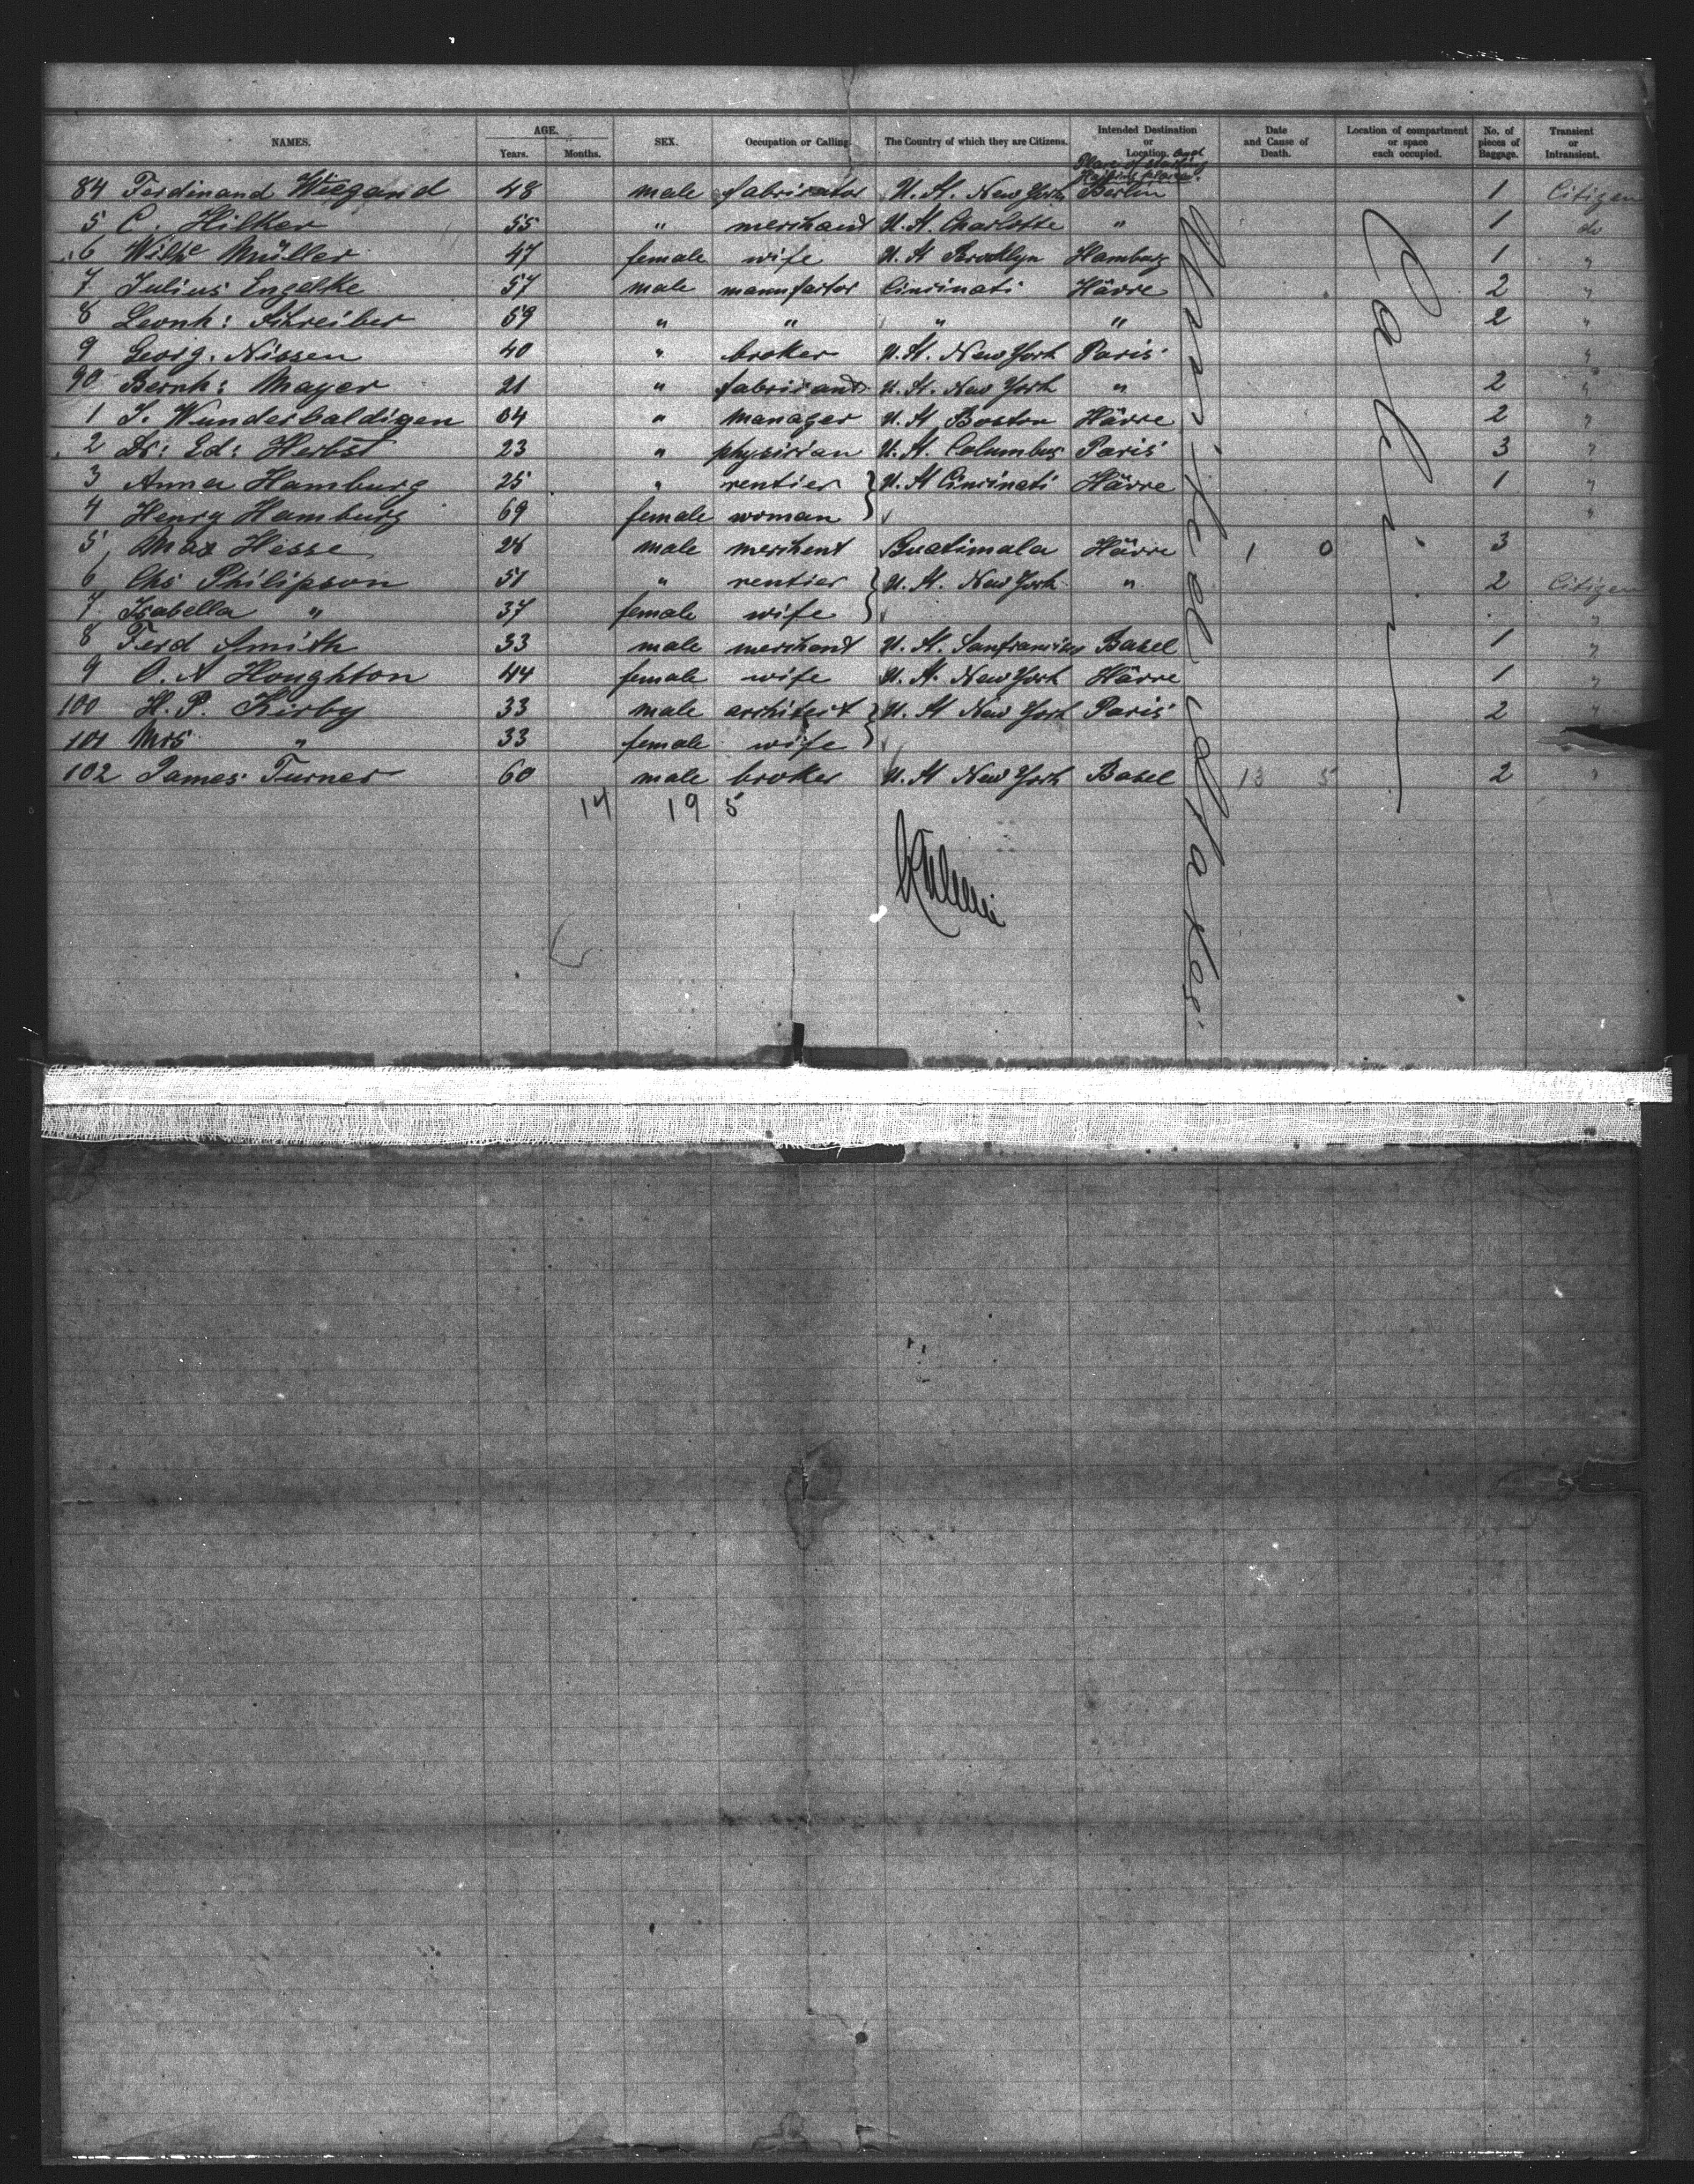 NAMES. AGE. Years. Months. SEX. Occupation or Calling The Country of which they are Citizens. Intended Destination or Location. and Place of starting Date and Cause of Death. Location of compartment or space each occupied. No. of pieces of Baggage. Transient or Intransient.
84 Ferdinand Wiegand 48 male fabricator U. St. New York Berlin 1 Citizen
5 C. Hilker 55 " merchant U. St. Charlotte " 1 do
6 Wilhe Müller 47 female wife U. St Brooklyn Hamburg 1 "
7 Julius Engelke 57 male manufactor Cincinati Hâvre 2 "
8 Leonh: Schreiber 59 " " " " 2 "
9 Georg. Nissen 40 " broker U. St. New York Paris "
90 Bernh: Mayer 21 " fabricant U. St. New York " 2 "
1 J. Wunderbaldigen 64 " manager U. St Boston Hâvre 2 "
2 Dr: Ed: Herbst 23 " physician U. St. Columbus Paris 3 "
3 Anna Hamburg 25 " rentier U. St Cincinati Hâvre 1 "
4 Henry Hamburg 69 female woman "
5 Max Hesse male merchent Guatimala Hâvre 1 0 3
6 Chs Philipson 51 " rentier U. St. New York " 2 Citizen
7 Isabella " 37 female wife "
8 Ferd Smith 33 male merchant U. St. Sanfrancisco Basel 1 "
9 O. A Houghton 44 female wife U. St. New York Hâvre 1 "
100 H. P. Kirby 33 male architect U. St New York Paris 2 "
101 Mrs " 33 female wife
102 James Turner 60 male broker U. St New York Basel 13 5 2 "
14 19 5
United States
Cabin